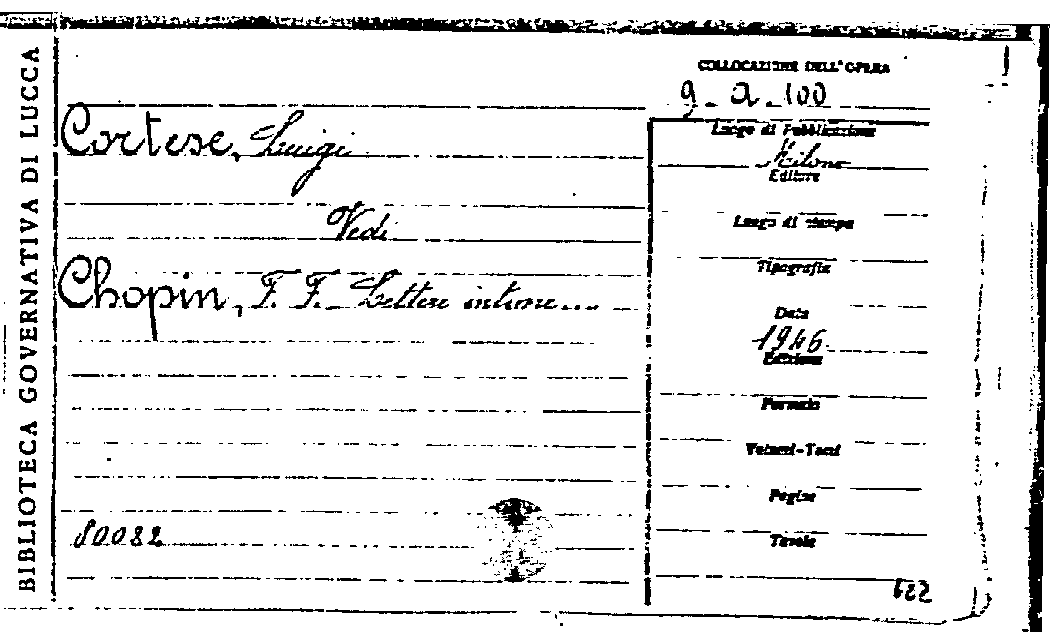 BIBLIOTECA GOVERNATIVA DI LUCCA
COLLOCAZIONE DELL'OPERA
9 - a - 100
Cortese, Luigi
Vedi
Chopin, F. F. - Lettere intime...
80082
Luogo di Pubblicazione
Milano
Editore
Luogo di stampa
Tipografia
Data
1946
Edizione
Formato
Volumi-Tomi
Pagine
Tavole
622